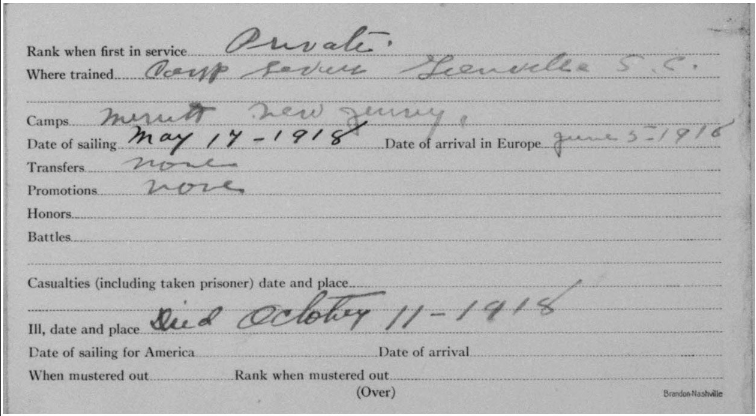 Rank when first in service Private.
Where trained Camp Sevier Greenville S.C.
Camps Merritt New Jersey.
Date of sailing May 17-1918 Date of arrival in Europe June 5-1918
Transfers none
Promotions none
Honors
Battles
Casualties (including taken prisoner) date and place
Ill, date and place Died October 11-1918
Date of sailing for America Date of arrival
When mustered out Rank when mustered out
(Over)
Brandon-Nashville